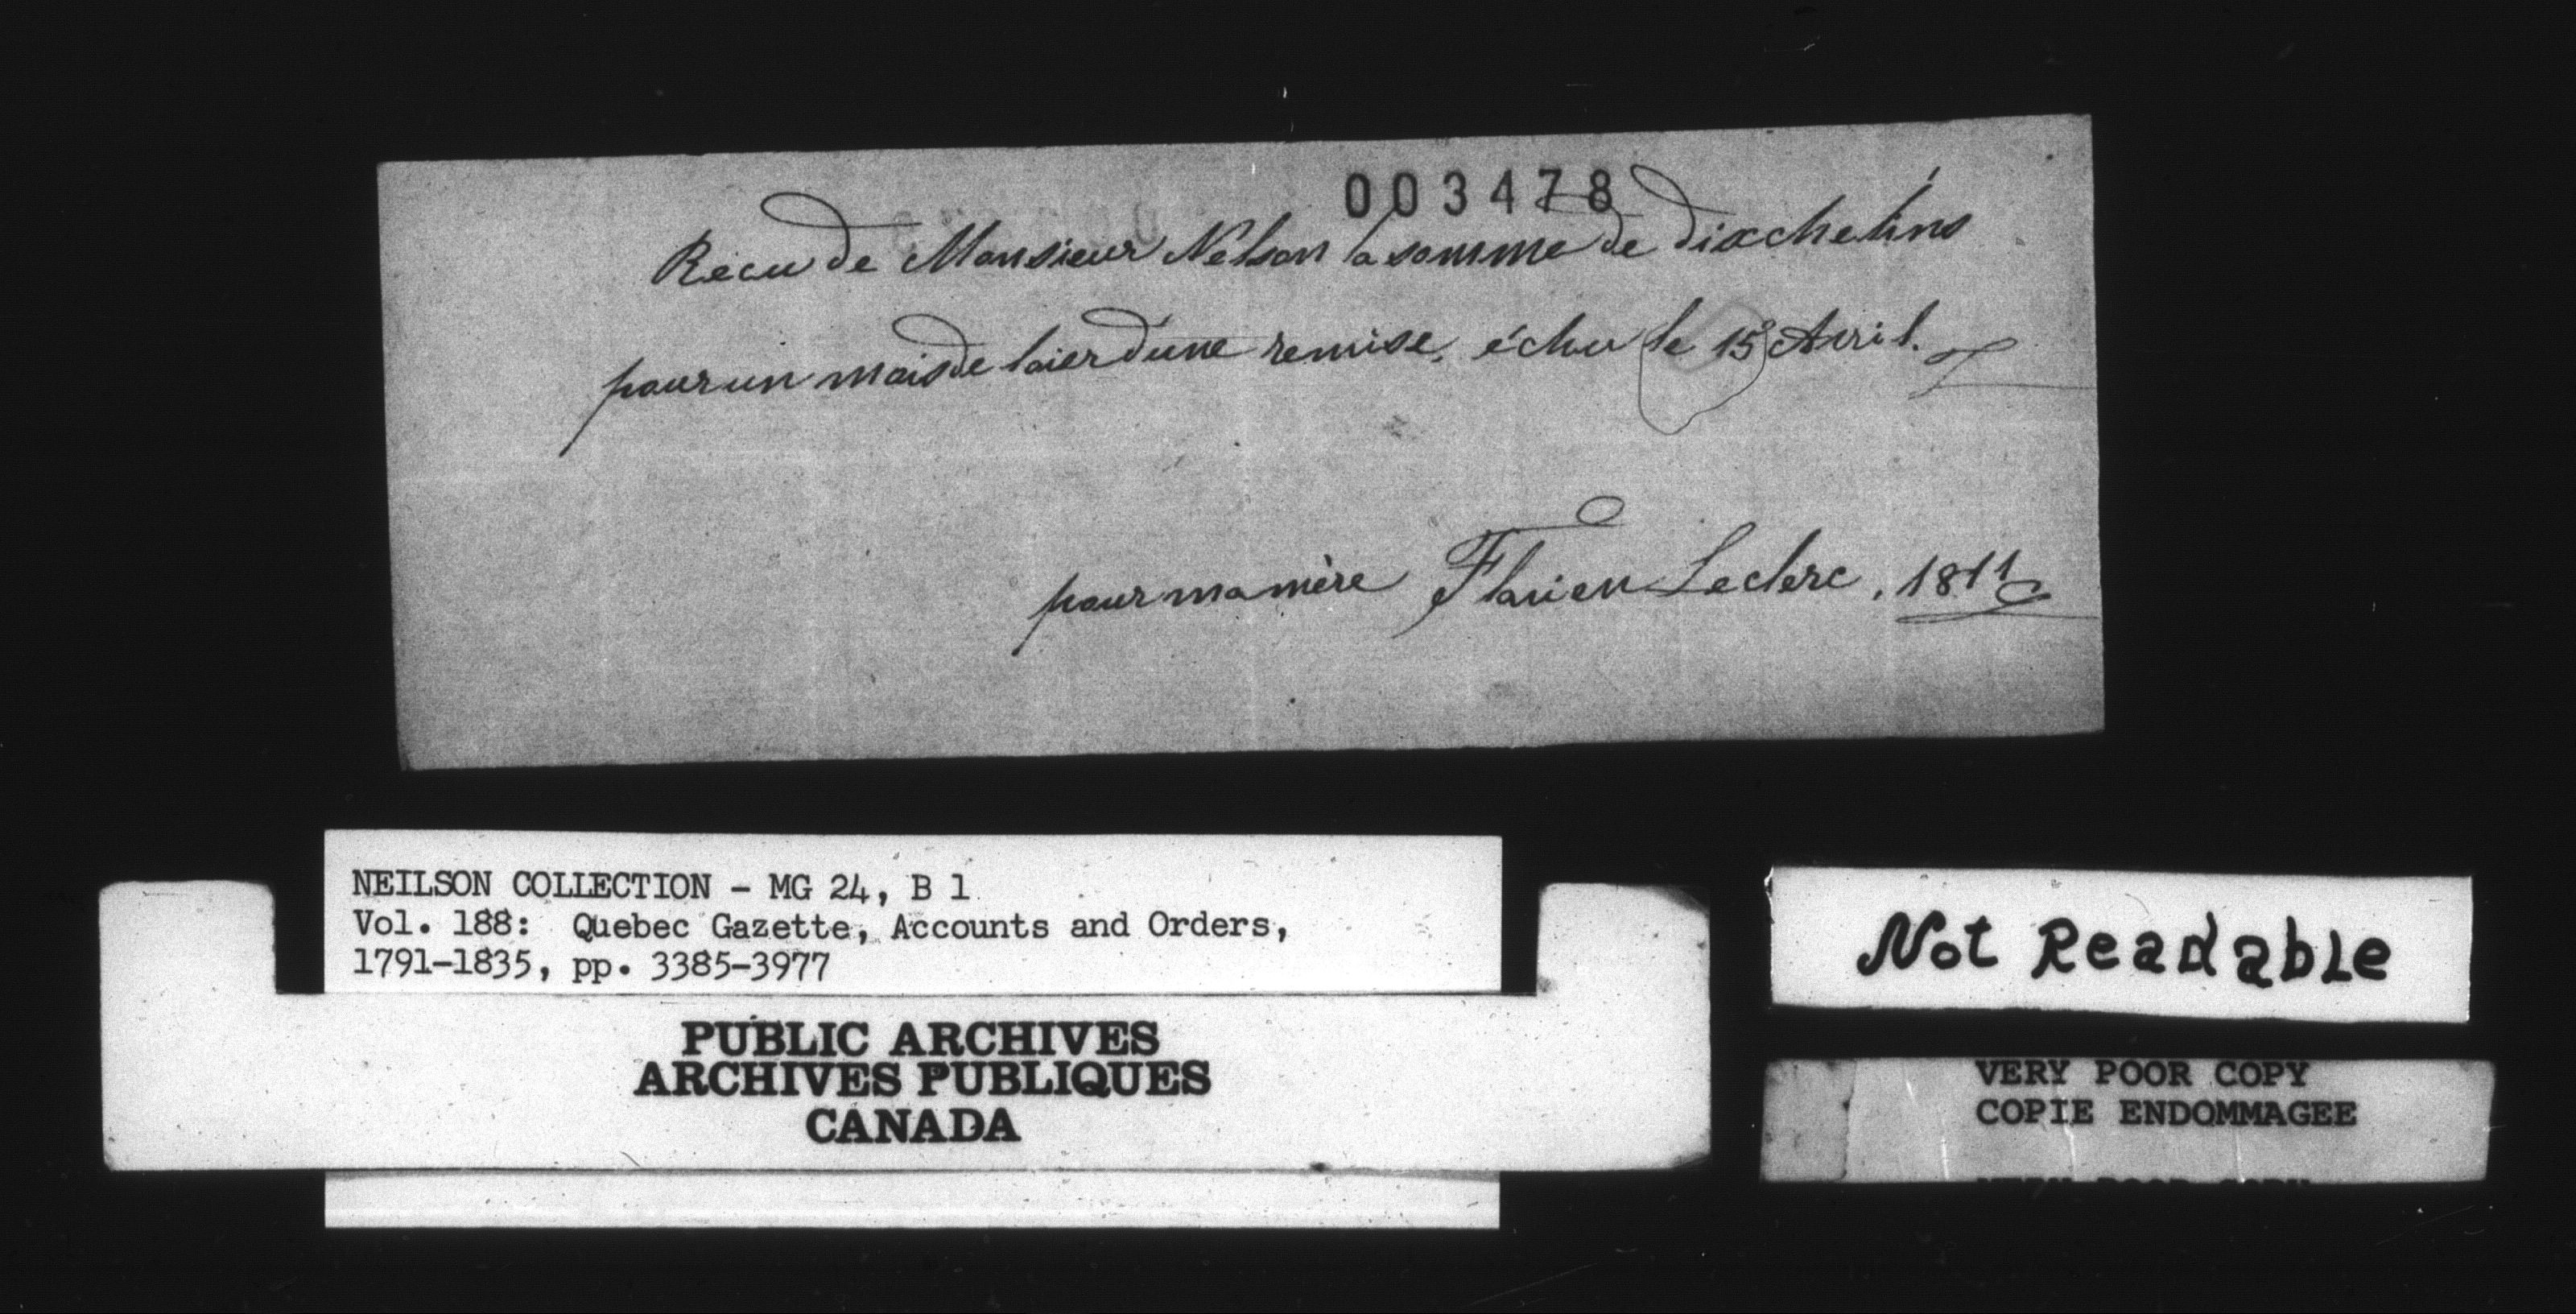 003478
Recu de Monsieur Nelson la somme de dix chelins
pour un mois de loier d'une remise, échu le 15e Avril.
pour ma mère Flavien Leclerc, 1811
NEILSON COLLECTION - MG 24, B 1
Vol. 188: Quebec Gazette, Accounts and Orders,
1791-1835, pp. 3385-3977
PUBLIC ARCHIVES
ARCHIVES PUBLIQUES
CANADA
Not Readable
VERY POOR COPY
COPIE ENDOMMAGEE